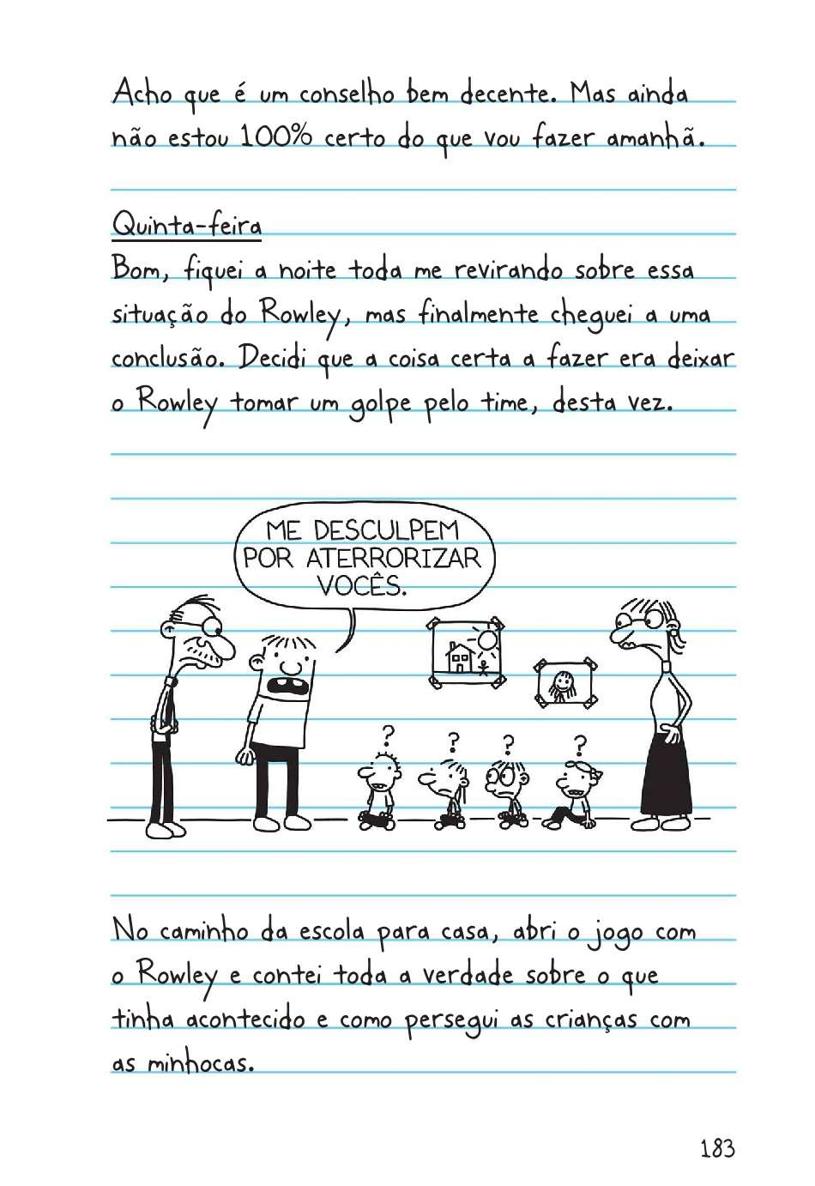 Acho que é um conselho bem decente. Mas ainda
não estou 100% certo do que vou fazer amanhã.
Quinta-feira
Bom, fiquei a noite toda me revirando sobre essa
situação do Rowley, mas finalmente cheguei a uma
conclusão. Decidi que a coisa certa a fazer era deixar
o Rowley tomar um golpe pelo time, desta vez.
ME DESCULPEM
POR ATERRORIZAR
VOCÊS.
? ? ? ?
No caminho da escola para casa, abri o jogo com
o Rowley e contei toda a verdade sobre o que
tinha acontecido e como persegui as crianças com
as minhocas.
183